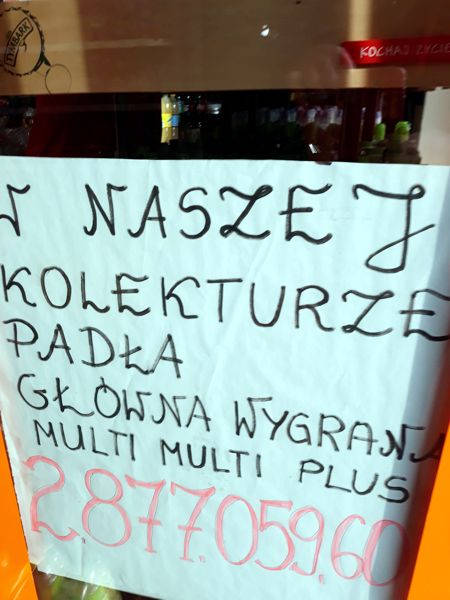 TYMBARK
KOCHAJ ŻYCIE
W NASZEJ
KOLEKTURZE
PADŁA
GŁÓWNA WYGRANA
MULTI MULTI PLUS
2.877.059.60